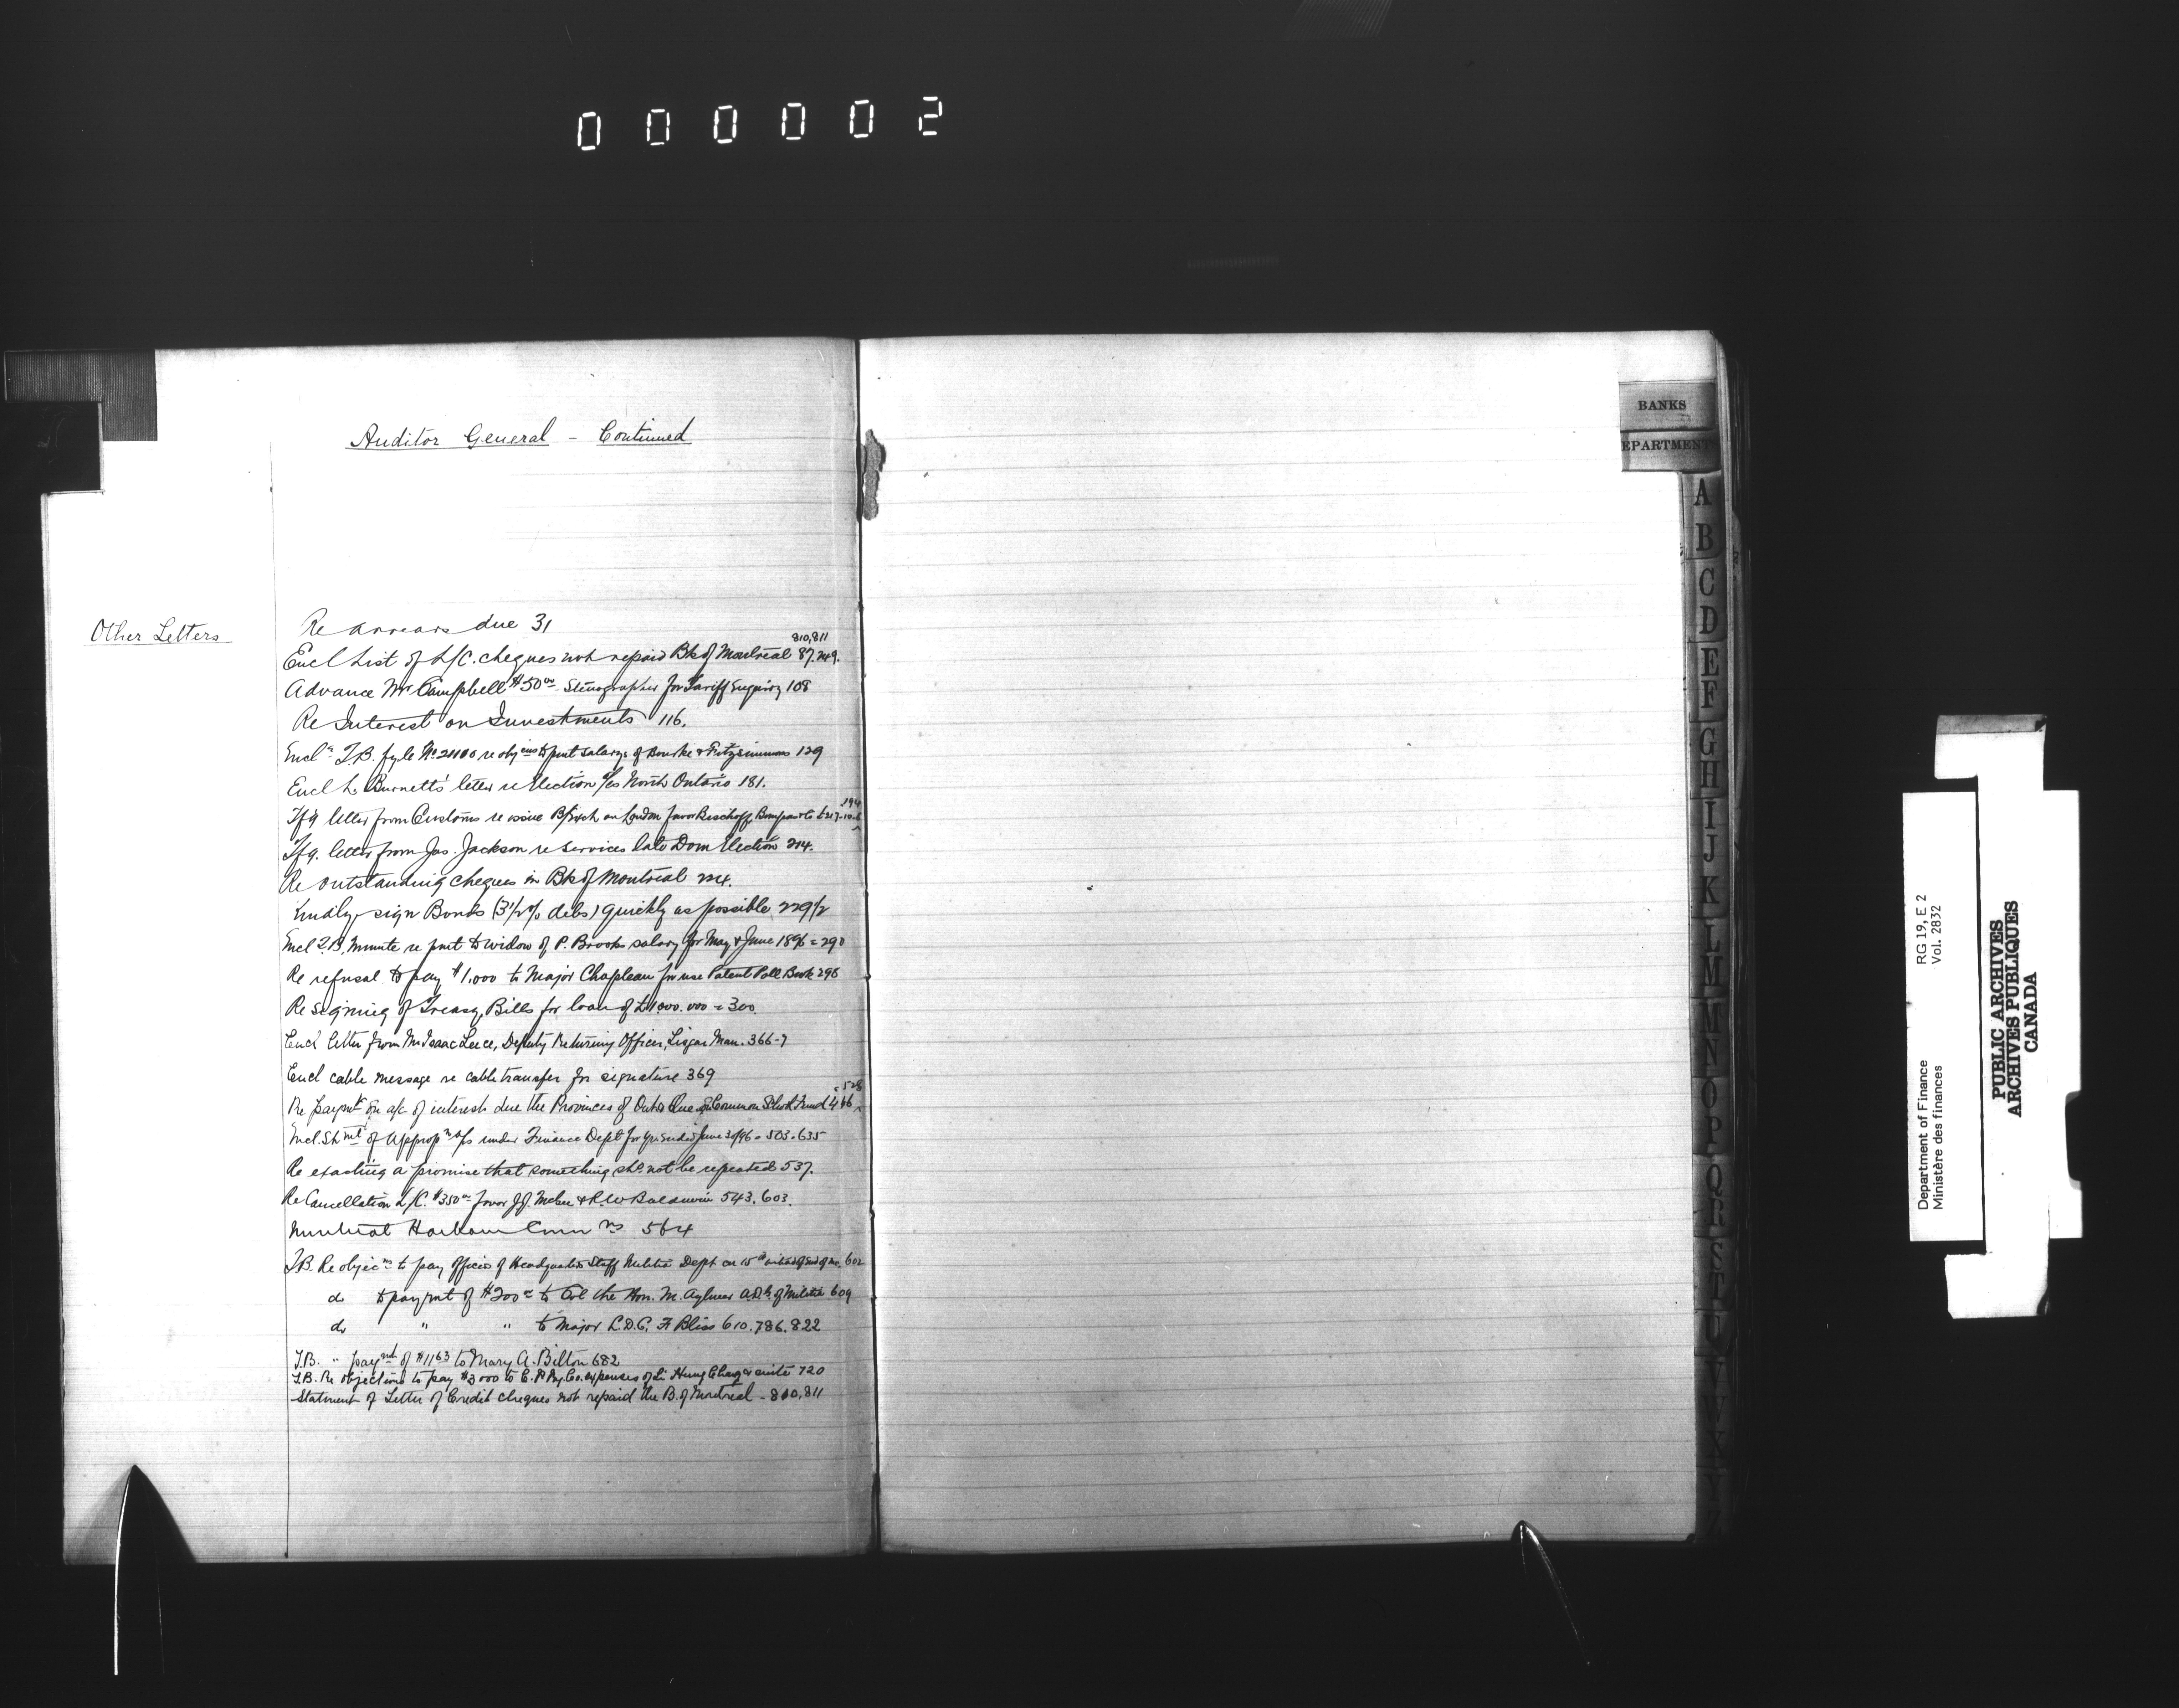 000002
Auditor General - Continued
Other Letters
Re arrears due 31
810,811
Encl List of L/C. cheques not repaid Bk of Montreal 87.249.
Advance Mr Campbell $50 00 Stenographer for Tariff Enquiry 108
Re Interest on Investments 116.
Encl T.B. fyle No 21100 re objons to pmt salary of Bourke & Fitzsimmons 129
Encl Burnett's letter re Election a/cs North Ontario 181.
194
letter from Customs re issue B/Exch on London favor Bischoff, Bompas & Co £217-10-
letter from Jas. Jackson re services late Dom Election 214.
Re outstanding cheques in Bk of Montreal 224.
Kindly sign Bonds (3½% debs) quickly as possible 229½
Encl T.B. Minute re pmt to widow of P. Brooks salary for May & June 1896 = 290
Re refusal to pay $1,000 to Major Chapleau for use Patent Poll Book 296
Re Signing of Treasy Bills for loan of £1000.000 = 300.
Encl letter from Mr Isaac Leece, Deputy Returning Officer, Lisgar Man. 366-7
Encl cable message re cable transfer for signature 369
528
Re paymt on a/c of interest due the Provinces of Onto & Que on Common School Fund 466
Encl. Stmt of Appropn a/cs under Finance Dept for yr ended June 30/96 = 503.635
Re exacting a promise that something shd not be repeated 537.
Re Cancellation L/C. $350 00 favor J.J. McGee & R.W Baldwin 543.603.
Montreal Harbour Comrs 564
T.B. Re objecns to pay Officers of Headquarters Staff Militia Dept on 15th instead of end of mo. 602
do to paymt of $200 to Col the Hon. M. Aylmer A.G. of Militia 609
do " " to Major L.D.C. F Bliss 610.786.822
T.B. " paymt of $1163 to Mary A. Bilton 682
T.B. Re objections to pay $3000 to C.P. Ry. Co. expenses of Li Hung Chang & suite 720
Statement of Letter of Credit cheques not repaid the B. of Montreal - 810,811
BANKS
EPARTMENT
A
B
C
D
E
F
G
H
I
J
K
L
M
M
N
O
P
Q
R
S
T
U
V
W
X
Y
Z
RG 19, E 2
Vol. 2832
Department of Finance
Ministère des finances
PUBLIC ARCHIVES
ARCHIVES PUBLIQUES
CANADA